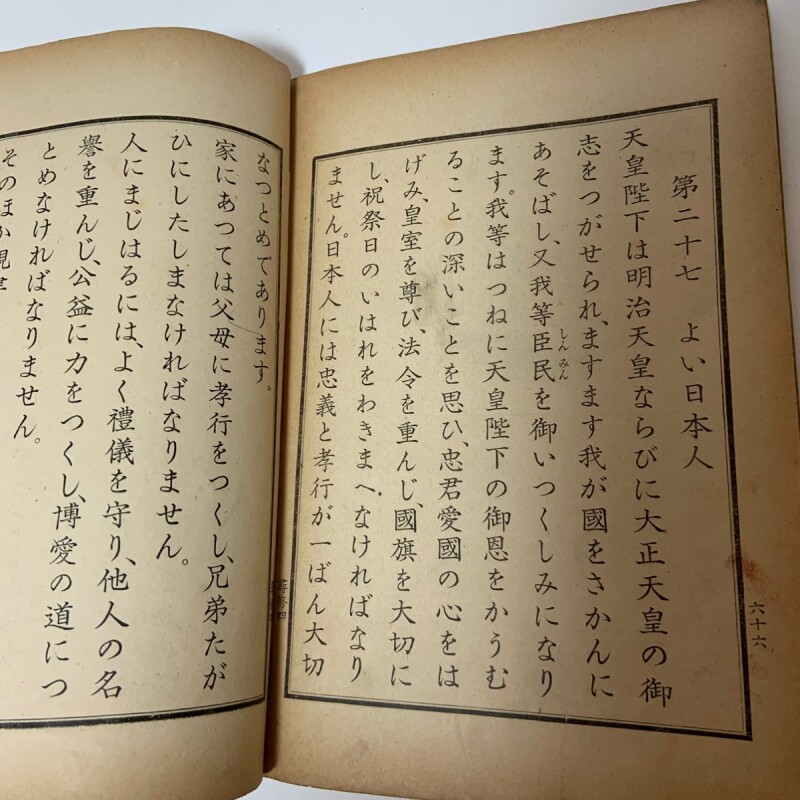 第二十七 よい日本人
天皇陛下は明治天皇ならびに大正天皇の御
志をつがせられ、ますます我が國をさかんに
あそばし、又我等臣民を御いつくしみになり
しんみん
ます。我等はつねに天皇陛下の御恩をかうむ
ることの深いことを思ひ、忠君愛國の心をは
げみ、皇室を尊び、法令を重んじ、國旗を大切に
し、祝祭日のいはれをわきまへなければなり
ません。日本人には忠義と孝行が一ばん大切
六十六
なつとめであります。
家にあつては父母に孝行をつくし、兄弟たが
ひにしたしまなければなりません。
人にまじはるには、よく禮儀を守り、他人の名
譽を重んじ、公益に力をつくし、博愛の道につ
とめなければなりません。
そのほか規